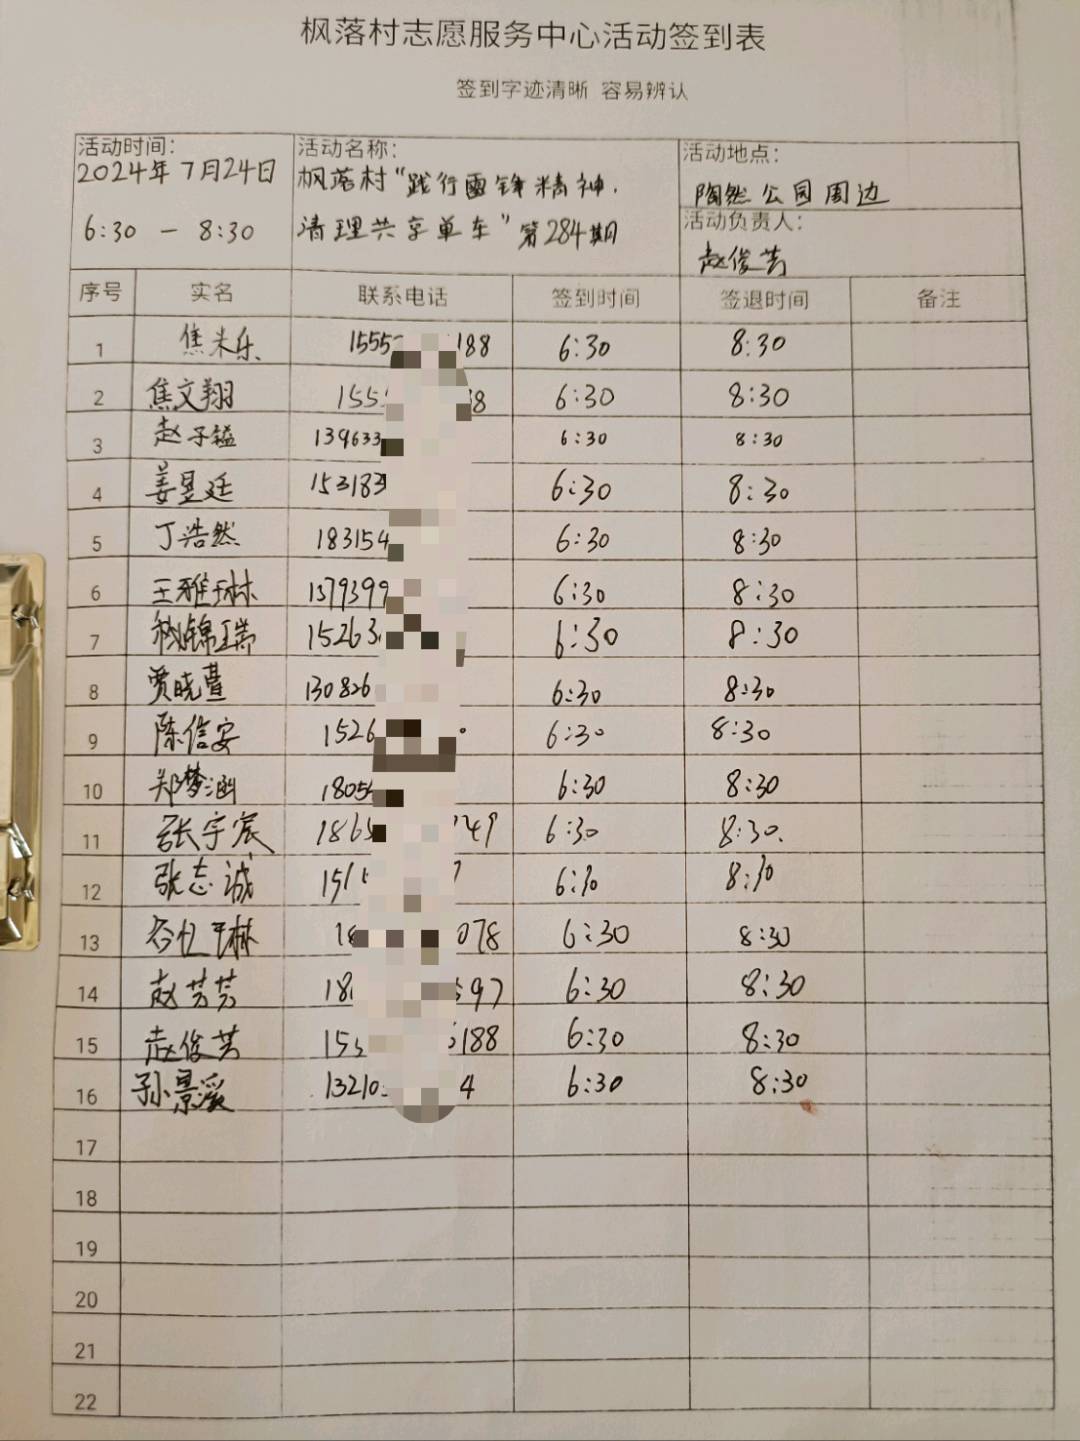 枫落村志愿服务中心活动签到表
签到字迹清晰 容易辨认
活动时间: 2024年7月24日 6:30 — 8:30
活动名称: 枫落村“践行雷锋精神.
清理共享单车”第284期
活动地点:
陶然公园周边
活动负责人:
赵俊芸
序号 实名 联系电话 签到时间 签退时间 备注
1 焦米乐 1555 188 6:30 8:30
2 焦文翔 155 8 6:30 8:30
3 赵子镒 139633 6:30 8:30
4 姜昱廷 153183 6:30 8:30
5 丁浩然 183154 6:30 8:30
6 王雅琳 1379399 6:30 8:30
7 锦瑞 15263 6:30 8:30
8 贾晓萱 130826 6:30 8:30
9 陈信安 1526 6:30 8:30
10 郑梦涵 1805 6:30 8:30
11 张宇宸 1865 249 6:30 8:30.
12 张志诚 151 6:30 8:30
13 谷仕琳 18 078 6:30 8:30
14 赵芳芳 18 597 6:30 8:30
15 赵俊芸 155 188 6:30 8:30
16 孙景溪 13210 4 6:30 8:30
17
18
19
20
21
22